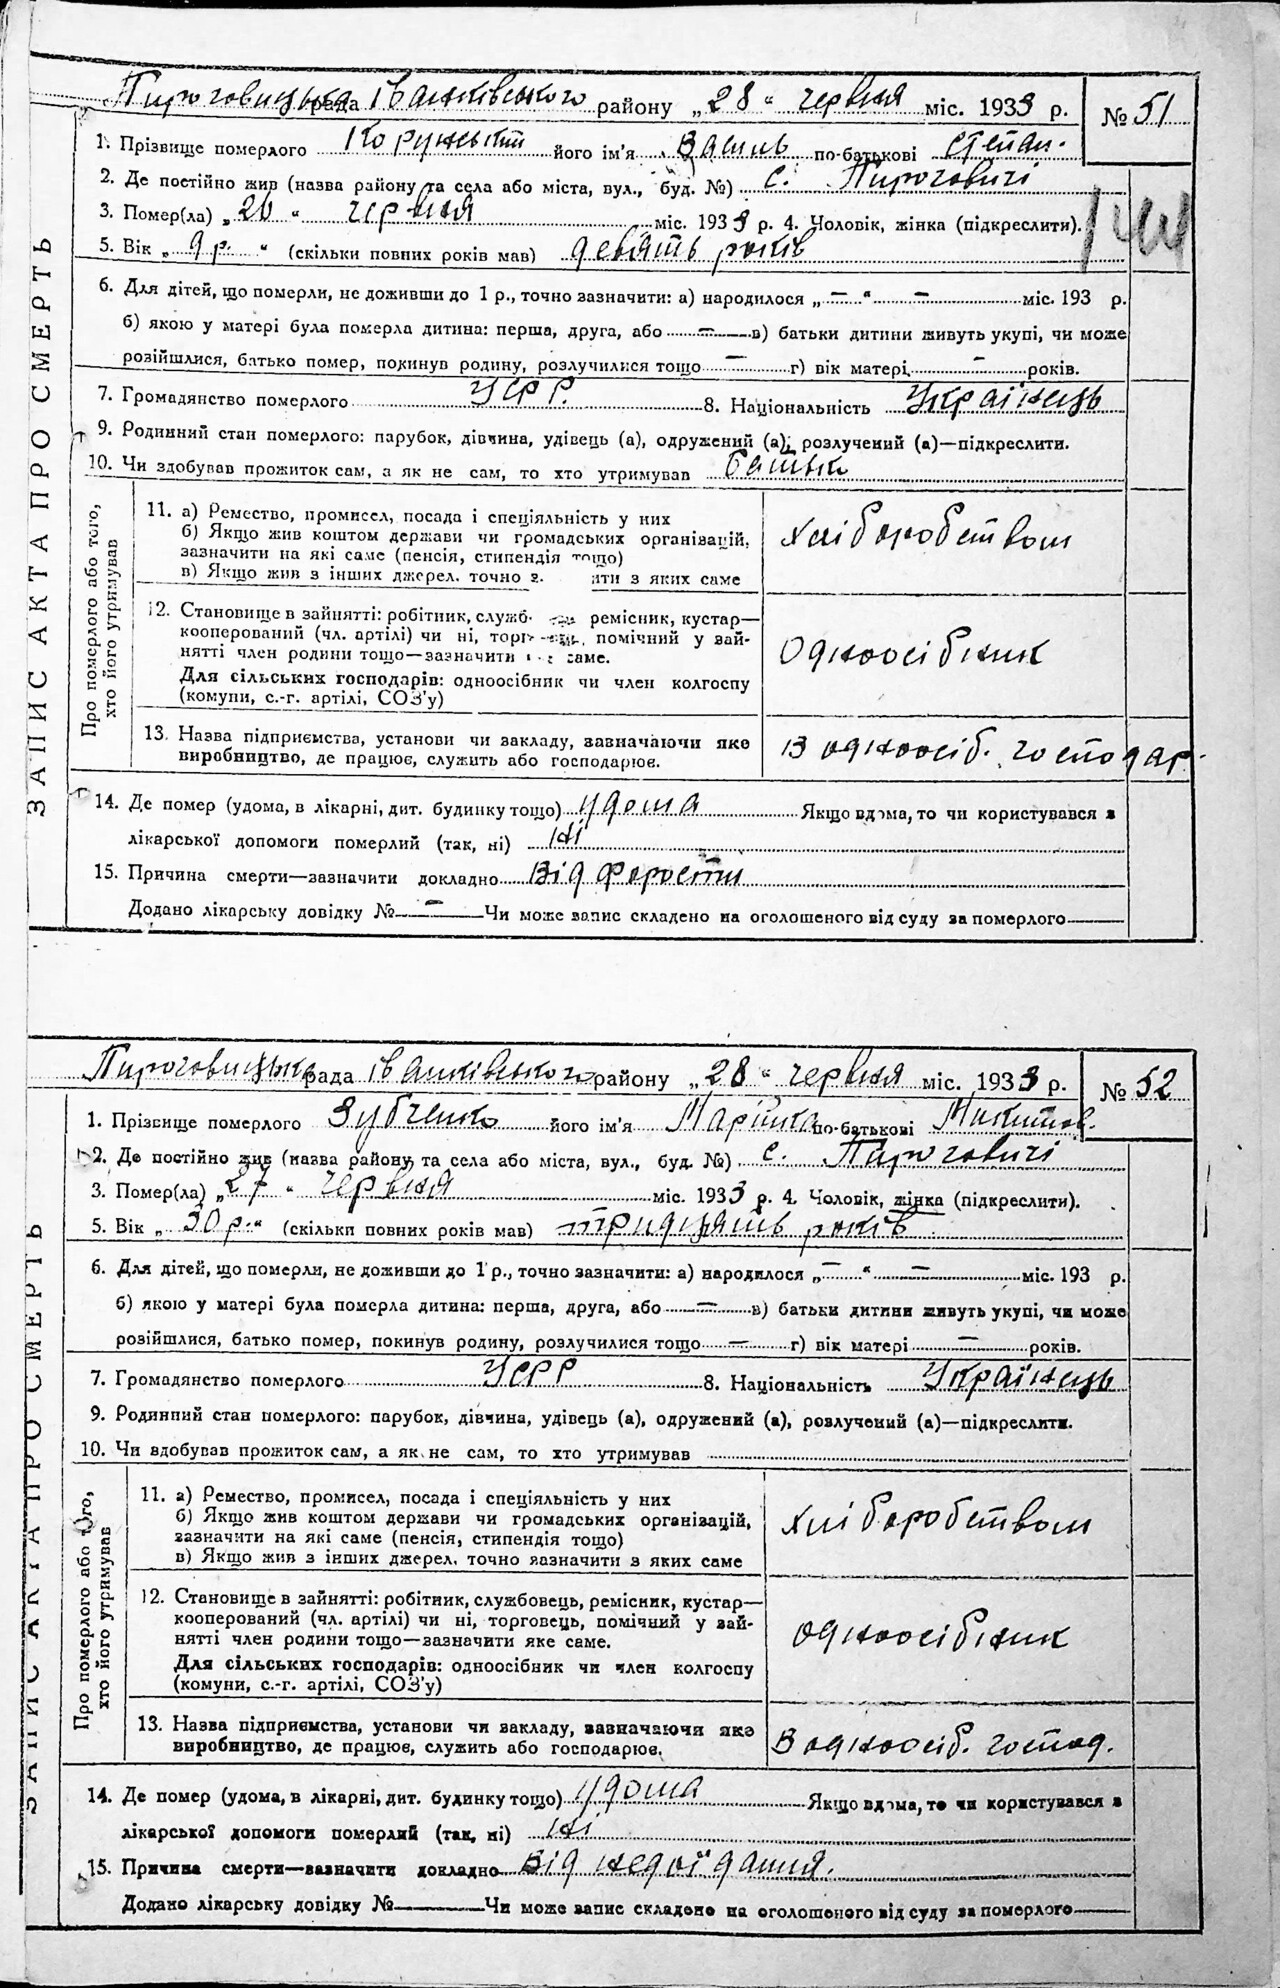 Пироговицька рада Іванківського району „28“ червня міс. 1933 р. № 51
1. Прізвище померлого його ім'я Василь по-батькові Степан.
2. Де постійно жив (назва району та села або міста, вул., буд. №) с. Пироговичі
3. Помер(ла) „20“ червня міс. 1933 р. 4. Чоловік, жінка (підкреслити).
144
5. Вік „9 р.“ (скільки повних років мав) девять років
6. Для дітей, що померли, не доживши до 1 р., точно зазначити: а) народилося „—“ — міс. 193 р.
б) якою у матері була померла дитина: перша, друга, або — в) батьки дитини живуть укупі, чи може
розійшлися, батько помер, покинув родину, розлучилися тощо — г) вік матері — років.
7. Громадянство померлого УСРР. 8. Національність Українець
9. Родинний стан померлого: парубок, дівчина, удівець (а), одружений (а), розлучений (а)—підкреслити.
10. Чи здобував прожиток сам, а як не сам, то хто утримував батько
ЗАПИС АКТА ПРО СМЕРТЬ
Про померлого або того, хто його утримував
11. а) Ремество, промисел, посада і спеціяльність у них
б) Якщо жив коштом держави чи громадських організацій,
зазначити на які саме (пенсія, стипендія тощо)
в) Якщо жив з інших джерел, точно з. ити з яких саме
Хліборобством
12. Становище в зайнятті: робітник, служб. ремісник, кустар—
кооперований (чл. артілі) чи ні, торг помічний у зай-
нятті член родини тощо—зазначити саме.
Для сільських господарів: одноосібник чи член колгоспу
(комуни, с.-г. артілі, СОЗ'у)
Одноосібник
13. Назва підприємства, установи чи закладу, зазначаючи яке
виробництво, де працює, служить або господарює.
В одноосіб. господар.
14. Де помер (удома, в лікарні, дит. будинку тощо) удома Якщо вдома, то чи користувався з
лікарської допомоги померлий (так, ні) ні
15. Причина смерти—зазначити докладно Від
Додано лікарську довідку № — Чи може запис складено на оголошеного від суду за померлого
Пироговицька рада Іванківського району „28“ червня міс. 1933 р. № 52
1. Прізвище померлого Зубченко його ім'я Марійка по-батькові Микитов.
2. Де постійно жив (назва району та села або міста, вул., буд. №) с. Пироговичі
3. Помер(ла) „27“ червня міс. 1933 р. 4. Чоловік, жінка (підкреслити).
5. Вік „30 р.“ (скільки повних років мав) тридцять років
6. Для дітей, що померли, не доживши до 1 р., точно зазначити: а) народилося „—“ — міс. 193 р.
б) якою у матері була померла дитина: перша, друга, або — в) батьки дитини живуть укупі, чи може
розійшлися, батько помер, покинув родину, розлучилися тощо — г) вік матері — років.
7. Громадянство померлого УСРР 8. Національність Українець
9. Родинний стан померлого: парубок, дівчина, удівець (а), одружений (а), розлучений (а)—підкреслити.
10. Чи здобував прожиток сам, а як не сам, то хто утримував
ЗАПИС АКТА ПРО СМЕРТЬ
Про померлого або того, хто його утримував
11. а) Ремество, промисел, посада і спеціяльність у них
б) Якщо жив коштом держави чи громадських організацій,
зазначити на які саме (пенсія, стипендія тощо)
в) Якщо жив з інших джерел, точно зазначити з яких саме
Хліборобством
12. Становище в зайнятті: робітник, службовець, ремісник, кустар—
кооперований (чл. артілі) чи ні, торговець, помічний у зай-
нятті член родини тощо—зазначити яке саме.
Для сільських господарів: одноосібник чи член колгоспу
(комуни, с.-г. артілі, СОЗ'у)
одноосібник
13. Назва підприємства, установи чи закладу, зазначаючи яке
виробництво, де працює, служить або господарює.
В одноосіб. господ.
14. Де помер (удома, в лікарні, дит. будинку тощо) удома Якщо вдома, то чи користувався з
лікарської допомоги померлий (так, ні) ні
15. Причина смерти—зазначити докладно Від недоїдання.
Додано лікарську довідку № Чи може запис складено на оголошеного від суду за померлого